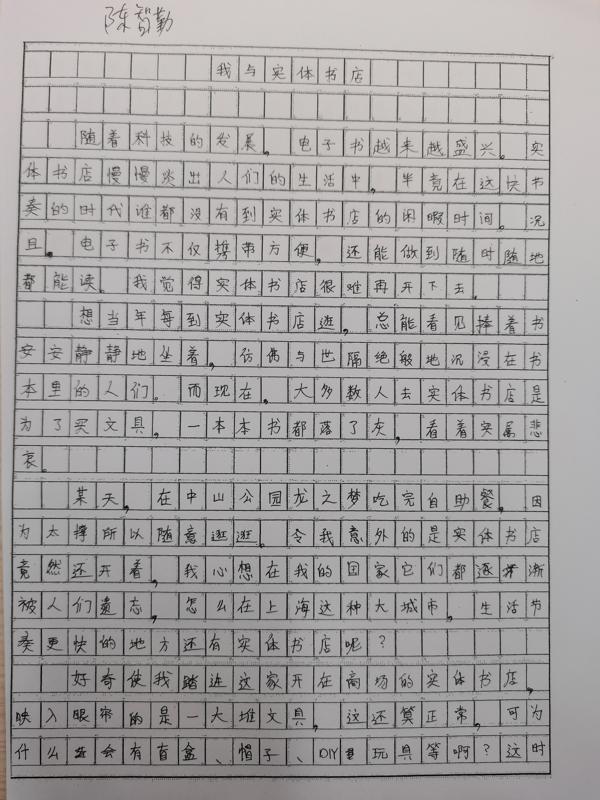 陈智勤
我与实体书店
随着科技的发展，电子书越来越盛兴。实
体书店慢慢淡出人们的生活中，毕竟在这快节
奏的时代谁都没有到实体书店的闲暇时间。况
且，电子书不仅携带方便，还能做到随时随地
都能读。我觉得实体书店很难再开下去。
想当年每到实体书店逛，总能看见捧着书
安安静静地坐着，仿佛与世隔绝般地沉浸在书
本里的人们。而现在，大多数人去实体书店是
为了买文具，一本本书都落了灰，看着实属悲
哀。
某天，在中山公园龙之梦吃完自助餐，因
为太撑所以随意逛逛。令我意外的是实体书店
竟然还开着，我心想在我的国家它们都逐渐
被人们遗忘，怎么在上海这种大城市，生活节
奏更快的地方还有实体书店呢？
好奇使我踏进这家开在商场的实体书店，
映入眼帘的是一大堆文具，这还算正常，可为
什么会有盲盒、帽子、DIY玩具等啊？这时